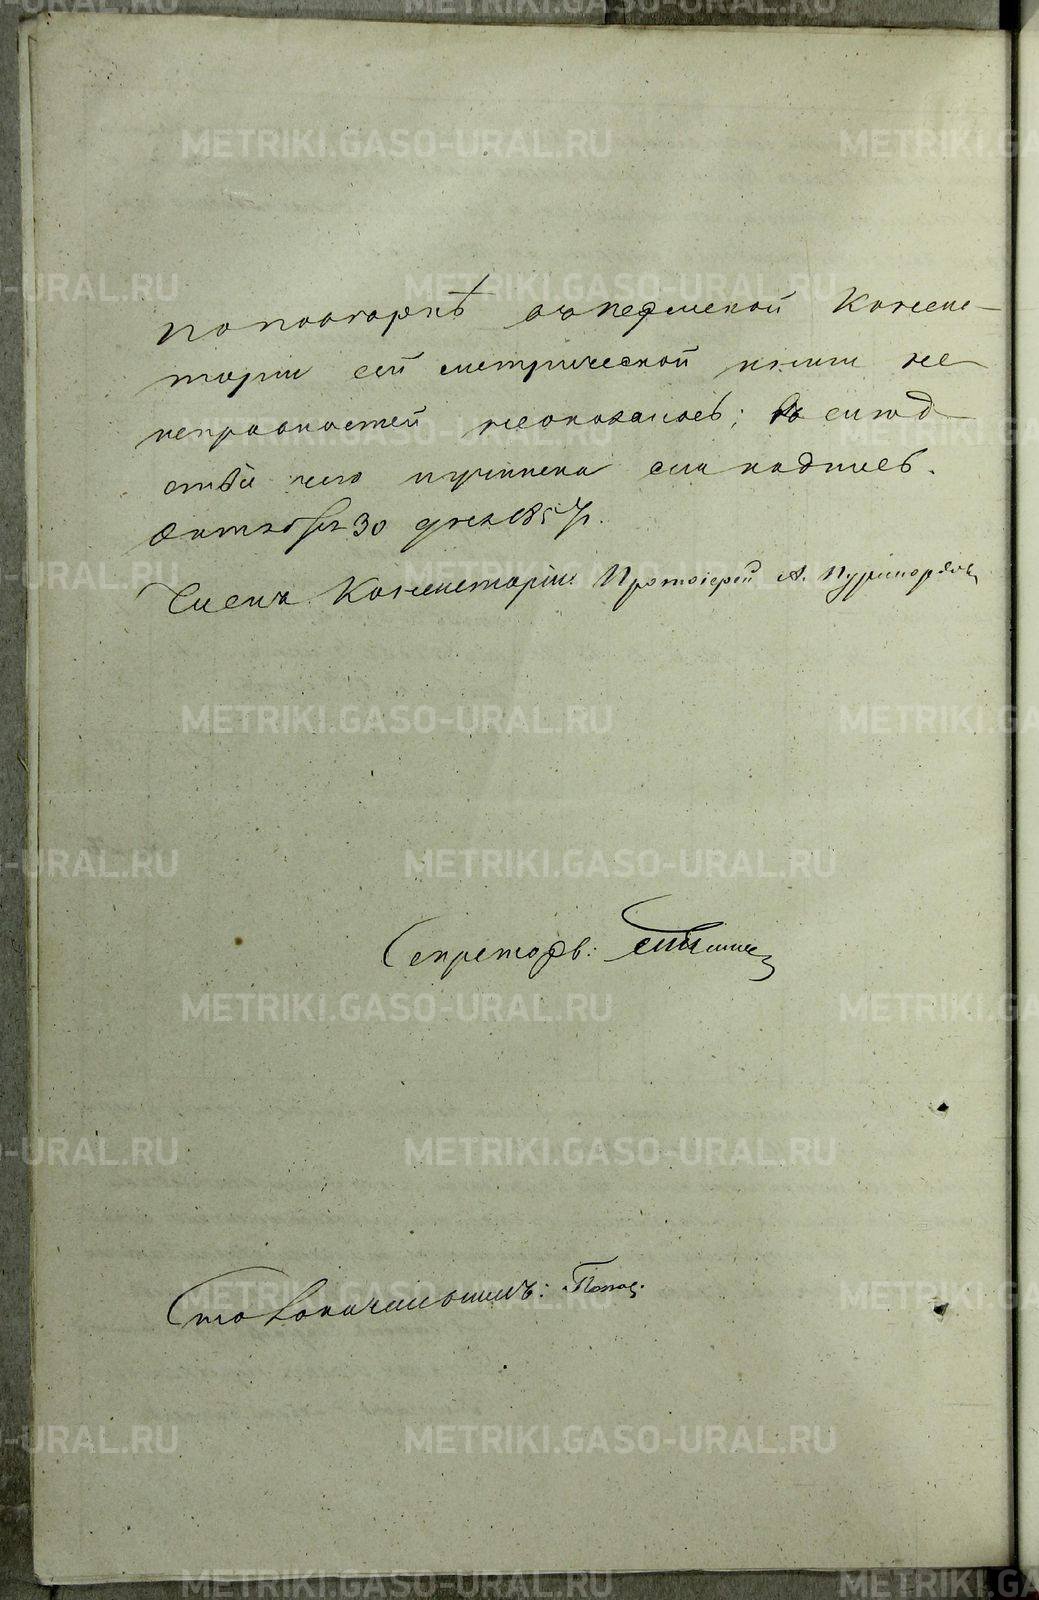 METRIKI.GASO-URAL.RU
по поверкѣ въ Пермской Консис-
торіи сей метрической книги не-
исправностей неоказалось; въ слѣд-
ствіе чего и учинена сія надпись.
Октября 30 дня 1857 г.
Членъ Консисторіи Протоіерей А.
Секретарь:
Столоначальникъ: Попов